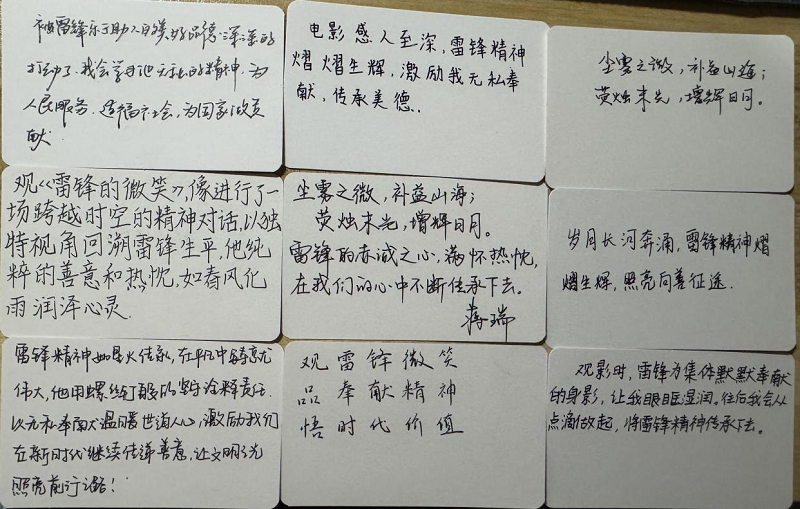 被雷锋乐于助人的美好品德深深的
打动了。我会学习他无私的精神，为
人民服务，造福社会，为国家做贡
献
电影感人至深，雷锋精神
熠熠生辉，激励我无私奉
献，传承美德.
尘雾之微，补益山海；
荧烛末光，增辉日月。
观《雷锋的微笑》，像进行了一
场跨越时空的精神对话，以独
特视角回溯雷锋生平，他纯
粹的善意和热忱，如春风化
雨润泽心灵.
尘雾之微，补益山海；
荧烛末光，增辉日月。
雷锋的赤诚之心，满怀热忱，
在我们的心中不断传承下去。
蒋瑞
岁月长河奔涌，雷锋精神熠
熠生辉，照亮向善征途.
雷锋精神如星火传承，在平凡中铸就
伟大，他用螺丝钉般的坚守诠释责任
以无私奉献温暖世道人心，激励我们
在新时代继续传递善意，让文明之光
照亮前行之路！
观雷锋微笑
品奉献精神
悟时代价值
观影时，雷锋为集体默默奉献
的身影，让我眼眶湿润。往后我会从
点滴做起，将雷锋精神传承下去。